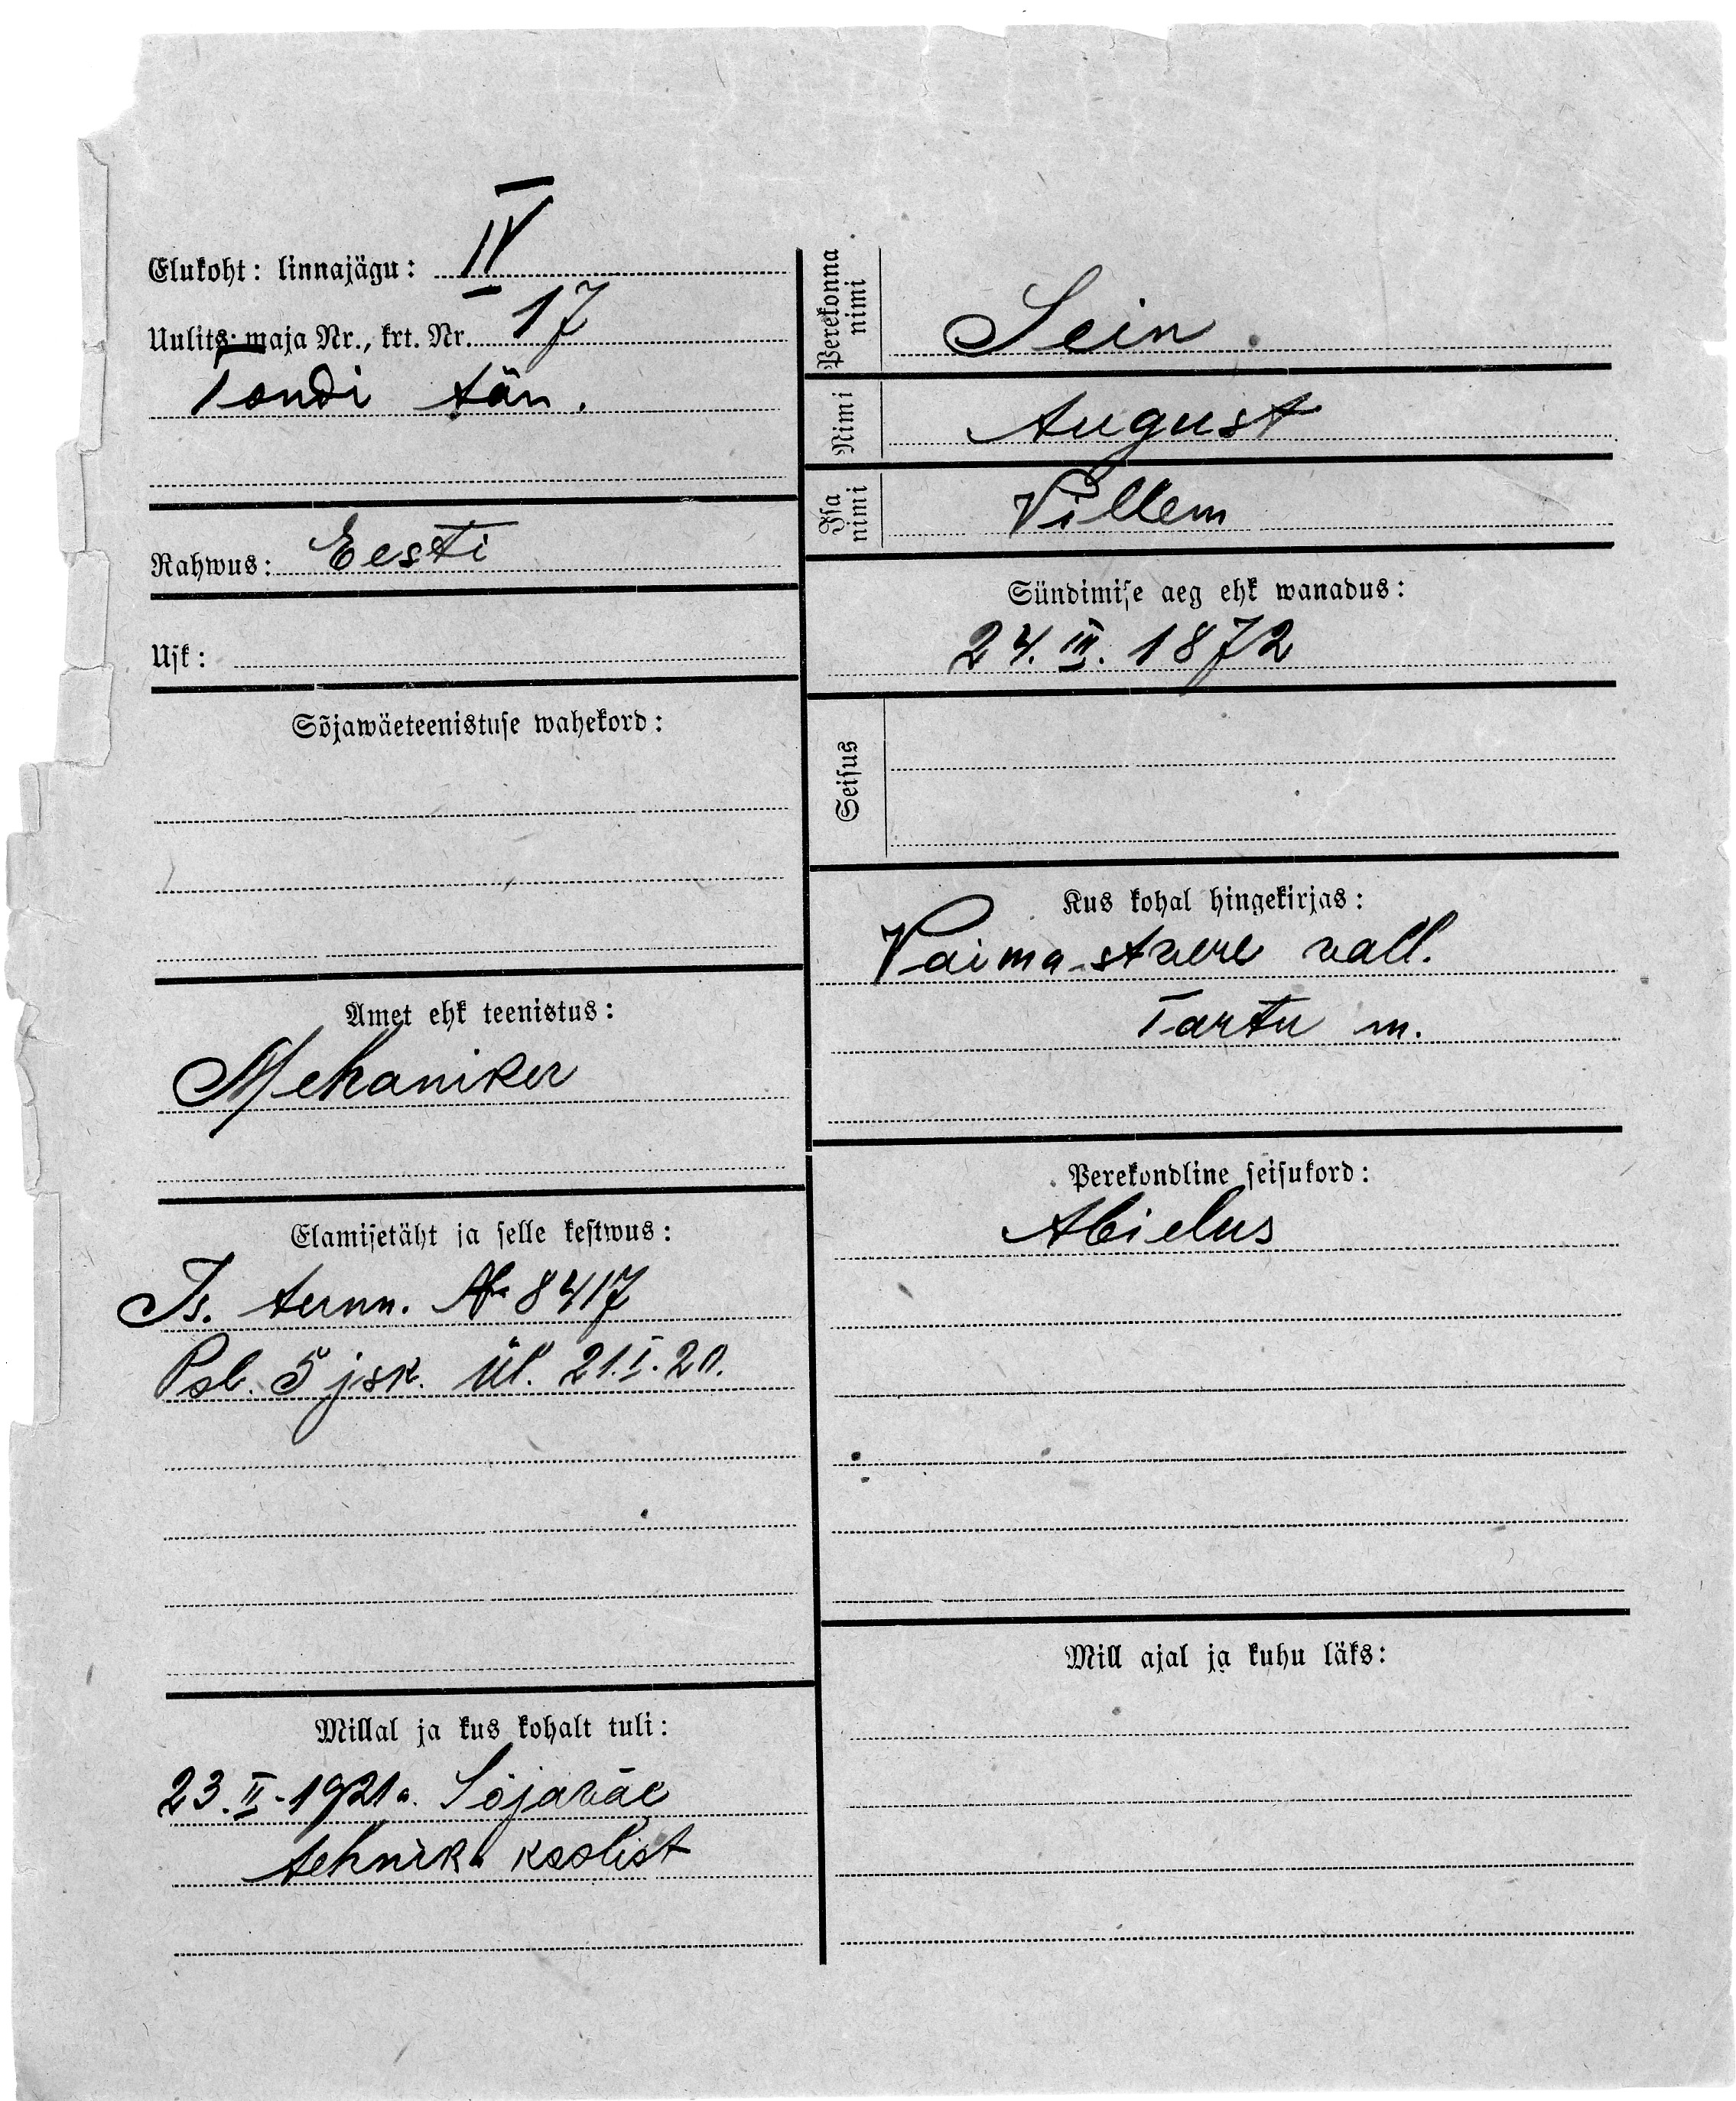 Elukoht: linnajägu: IV
Uulits, maja Nr., krt. Nr. 17
Tondi tän.
Rahwus: Eesti
Usk:
Sõjawäeteenistuse wahekord:
Amet ehk teenistus:
Mehaniker
Elamisetäht ja selle kestwus:
Is. tunn. № 8417
Pol. 5 jsk. ül. 21.I.20.
Millal ja kus kohalt tuli:
23.II-1921a. Sõjaväe
tehnika koolist
Perekonna nimi
Sein.
Nimi
August
Isa nimi
Villem
Sündimise aeg ehk wanadus:
24.III.1872
Seisus
Kus kohal hingekirjas:
Vaimastvere vall.
Tartu m.
Perekondline seisukord:
Abielus
Mill ajal ja kuhu läks: